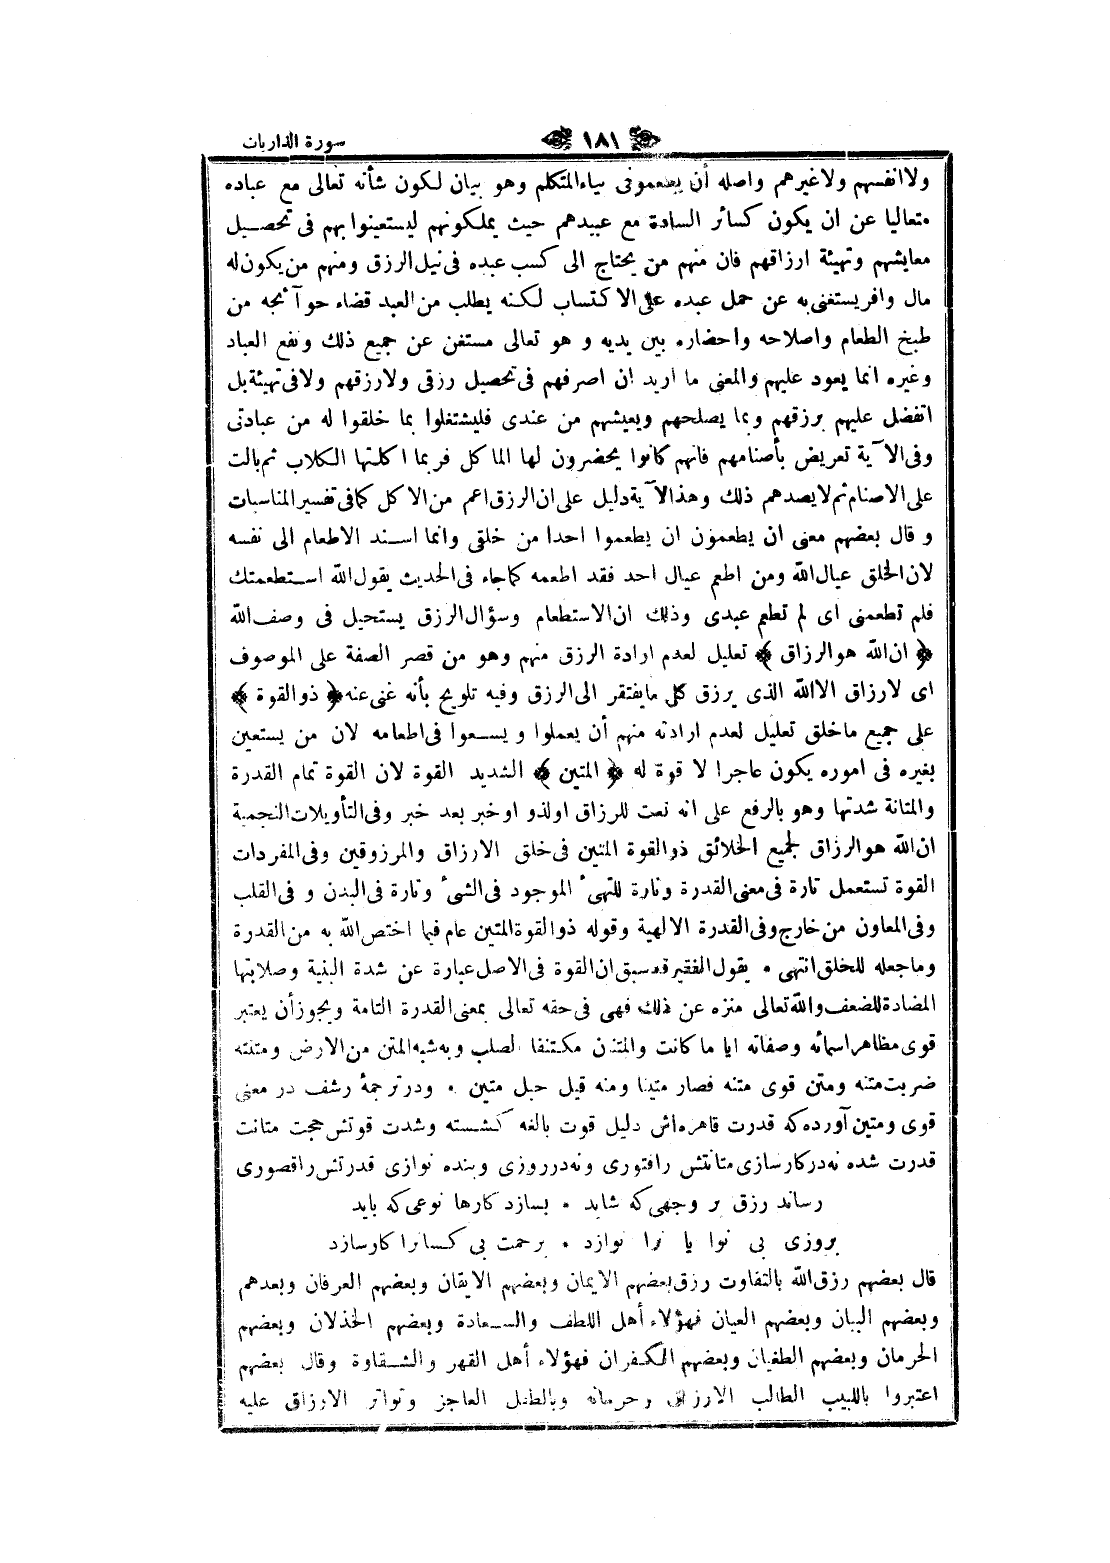 سورة الذاريات
١٨١
ولا انفسهم ولا غيرهم واصله أن يطعمونى بياء المتكلم وهو بيان لكون شأنه تعالى مع عباده
متعاليا عن ان يكون كسائر السادة مع عبيدهم حيث يملكونهم ليستعينوا بهم فى تحصيل
معايشهم وتهيئة ارزاقهم فان منهم من يحتاج الى كسب عبده فى نيل الرزق ومنهم من يكون له
مال وافر يستغنى به عن حمل عبده على الاكتساب لكنه يطلب من العبد قضاء حوآئجه من
طبخ الطعام واصلاحه واحضاره بين يديه و هو تعالى مستغن عن جميع ذلك ونفع العباد
وغيره انما يعود عليهم والمعنى ما اريد ان اصرفهم فى تحصيل رزقى ولا رزقهم ولا فى تهيئة بل
اتفضل عليهم برزقهم وبما يصلحهم ويعيشهم من عندى فليشتغلوا بما خلقوا له من عبادتى
وفى الآية تعريض بأصنامهم فانهم كانوا يحضرون لها المآكل فربما اكلتها الكلاب ثم بالت
على الاصنام ثم لا يصدهم ذلك وهذ الآية دليل على ان الرزق اعم من الاكل كما فى تفسير المناسبات
و قال بعضهم معنى ان يطعمون ان يطعموا احدا من خلقى وانما اسند الاطعام الى نفسه
لان الخلق عيال الله ومن اطعم عيال احد فقد اطعمه كما جاء فى الحديث يقول الله استطعمتك
فلم تطعمنى اى لم تطعم عبدى وذلك ان الاستطعام وسؤال الرزق يستحيل فى وصف الله
﴿ ان الله هو الرزاق ﴾ تعليل لعدم ارادة الرزق منهم وهو من قصر الصفة على الموصوف
اى لا رزاق الا الله الذى يرزق كل ما يفتقر الى الرزق وفيه تلويح بأنه غنى عنه ﴿ ذو القوة ﴾
على جميع ما خلق تعليل لعدم ارادته منهم أن يعملوا و يسعوا فى اطعامه لان من يستعين
بغيره فى اموره يكون عاجزا لا قوة له ﴿ المتين ﴾ الشديد القوة لان القوة تمام القدرة
والمتانة شدتها وهو بالرفع على انه نعت للرزاق او لذو او خبر بعد خبر وفى التأويلات النجمية
ان الله هو الرزاق لجميع الخلائق ذو القوة المتين فى خلق الارزاق والمرزوقين وفى المفردات
القوة تستعمل تارة فى معنى القدرة وتارة للتهيئ الموجود فى الشىء وتارة فى البدن و فى القلب
وفى المعاون من خارج وفى القدرة الالهية وقوله ذو القوة المتين عام فيما اختص الله به من القدرة
وما جعله للخلق انتهى • يقول الفقير قد سبق ان القوة فى الاصل عبارة عن شدة البنية وصلابتها
المضادة للضعف والله تعالى منزه عن ذلك فهى فى حقه تعالى بمعنى القدرة التامة ويجوز أن يعتبر
قوى مظاهر اسمائه وصفاته ايا ما كانت والمتنان مكتنفا الصلب وبه شبه المتن من الارض ومتنته
ضربت متنه ومتن قوى متنه فصار متينا ومنه قيل حبل متين • ودر ترجمۀ رشف در معنى
قوى ومتين آورده كه قدرت قاهره اش دليل قوت بالغه كشسته وشدت قوتش حجت متانت
قدرت شده نه در كارسازى متانتش را فتورى ونه در روزى وبنده نوازى قدرتش را قصورى
رساند رزق بر وجهى كه شايد • بسازد كارها نوعى كه بايد
بروزى بى نوا يا نرا نوازد • برحمت بى كسانرا كار سازد
قال بعضهم رزق الله بالتفاوت رزق بعضهم الايمان وبعضهم الايقان وبعضهم العرفان وبعدهم
وبعضهم البيان وبعضهم العيان فهؤلاء أهل اللطف والسعادة وبعضهم الخذلان وبعضهم
الحرمان وبعضهم الطغيان وبعضهم الكفران فهؤلاء أهل القهر والشقاوة وقال بعضهم
اعتبروا باللبيب الطالب الارزاق وحرمانه وبالطفل العاجز وتواتر الارزاق عليه